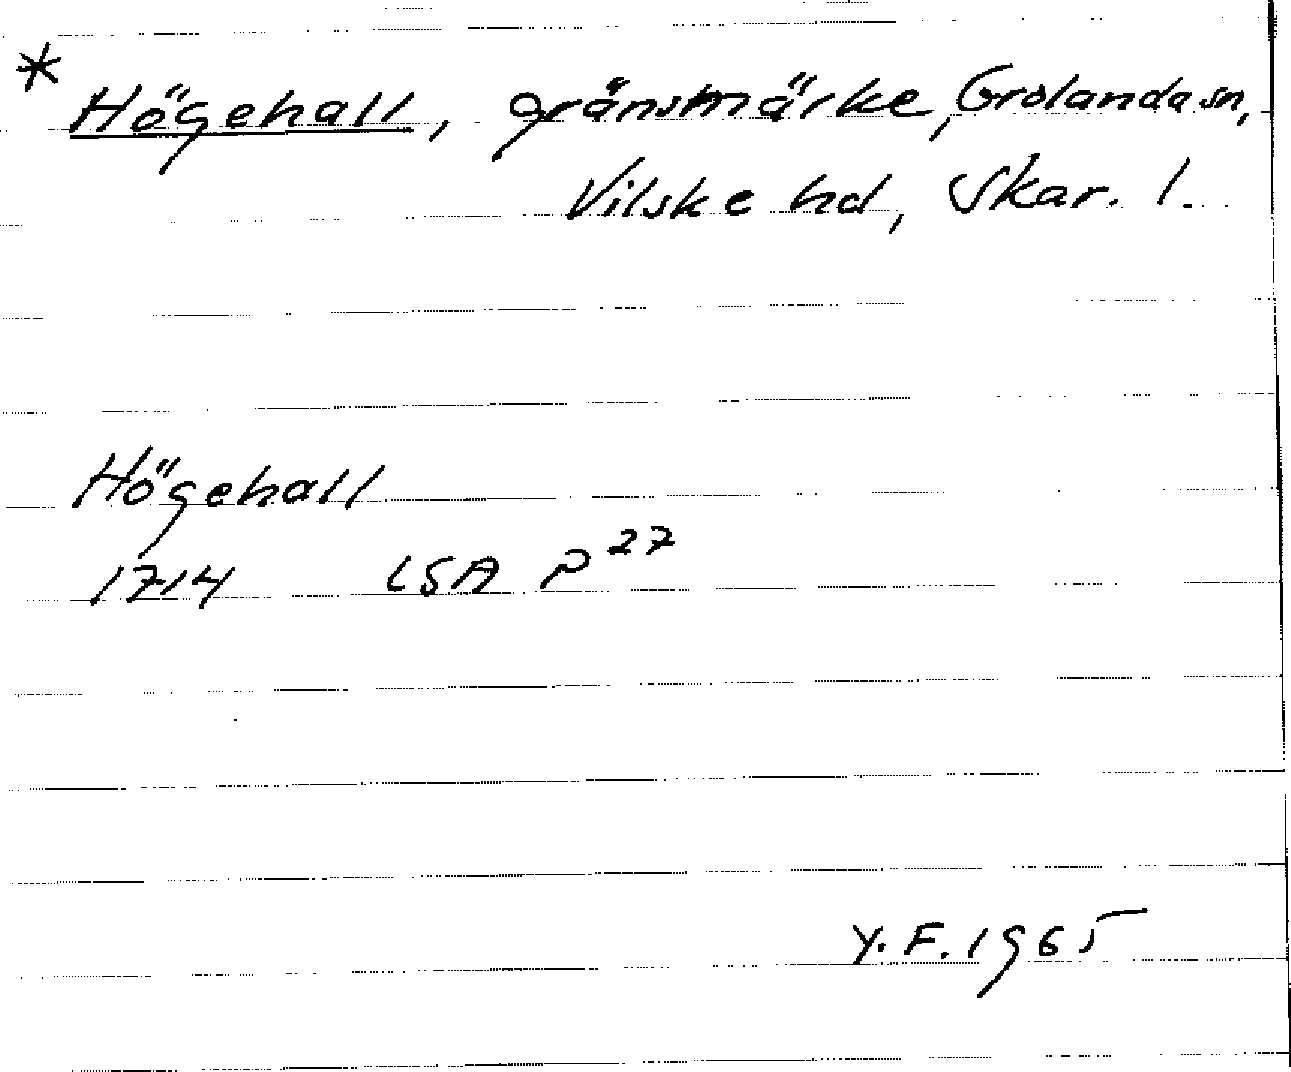 * Högehall, gränsmärke, Grolanda sn,
Vilske hd, Skar. l.
Högehall
1714 LSA P 27
Y. F. 1965